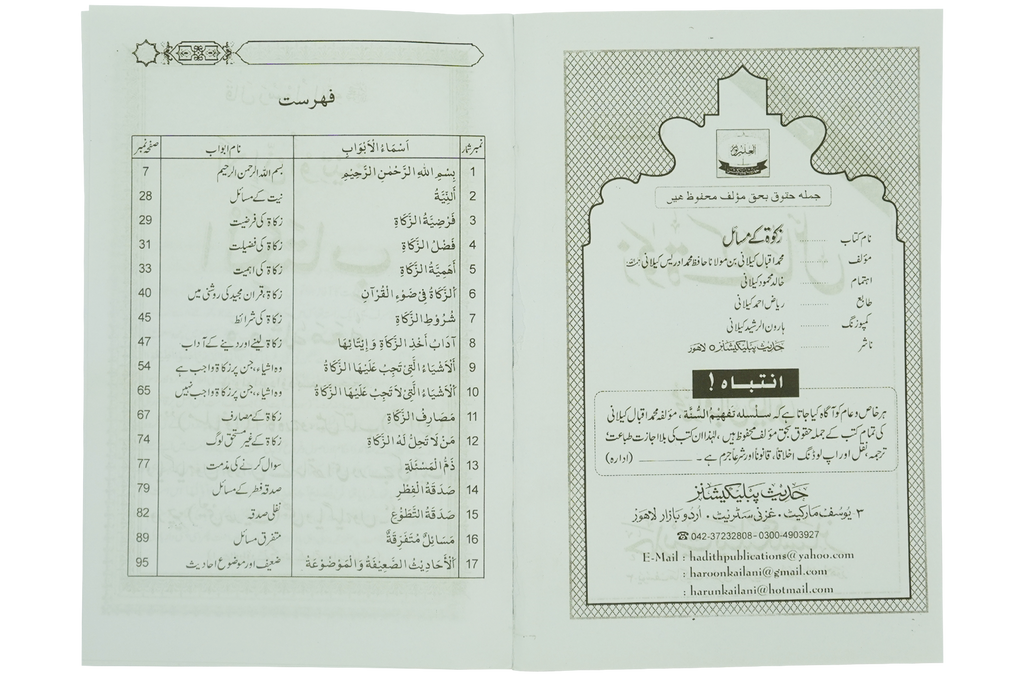 جملہ حقوق بحق مؤلف محفوظ ھیں
نام کتاب ......... زکوٰۃ کے مسائل
مؤلف ......... محمد اقبال کیلانی بن مولانا حافظ محمد ادریس کیلانی
اہتمام ......... خالد محمود کیلانی
طابع ......... ریاض احمد کیلانی
کمپوزنگ ......... ہارون الرشید کیلانی
ناشر ......... حدیث پبلیکیشنز، لاہور
انتباہ !
ہر خاص و عام کو آگاہ کیا جاتا ہے کہ سلسلہ تفہیم السنۃ، مؤلفہ محمد اقبال کیلانی
کی تمام کتب کے جملہ حقوق بحق مؤلف محفوظ ہیں، لہٰذا ان کتب کی بلا اجازت طباعت،
ترجمہ، نقل اور اپ لوڈنگ اخلاقاً، قانوناً اور شرعاً جرم ہے۔ ________ (ادارہ)
حدیث پبلیکیشنز
۳ یوسف مارکیٹ، غزنی سٹریٹ، اردو بازار لاہور
☎ 042-37232808 - 0300-4903927
E-Mail : hadithpublications@yahoo.com
: haroonkailani@gmail.com
: harunkailani@hotmail.com
فہرست
نمبر شمار أَسْمَاءُ الْأَبْوَابِ نام ابواب صفحہ نمبر
1 بِسْمِ اللهِ الرَّحْمٰنِ الرَّحِيْمِ بسم اللہ الرحمن الرحیم 7
2 أَلنِّيَّةُ نیت کے مسائل 28
3 فَرْضِيَّةُ الزَّكَاةِ زکاۃ کی فرضیت 29
4 فَضْلُ الزَّكَاةِ زکاۃ کی فضیلت 31
5 أَهَمِيَّةُ الزَّكَاةِ زکاۃ کی اہمیت 33
6 اَلزَّكَاةُ فِىْ ضَوْءِ الْقُرْآنِ زکاۃ، قرآن مجید کی روشنی میں 40
7 شُرُوْطُ الزَّكَاةِ زکاۃ کی شرائط 45
8 آدَابُ أَخْذِ الزَّكَاةِ وَ إِيْتَائِهَا زکاۃ لینے اور دینے کے آداب 47
9 أَلْأَشْيَاءُ الَّتِىْ تَجِبُ عَلَيْهَا الزَّكَاةُ وہ اشیاء، جن پر زکاۃ واجب ہے 54
10 أَلْأَشْيَاءُ الَّتِىْ لَا تَجِبُ عَلَيْهَا الزَّكَاةُ وہ اشیاء، جن پر زکاۃ واجب نہیں 65
11 مَصَارِفُ الزَّكَاةِ زکاۃ کے مصارف 67
12 مَنْ لَا تَحِلُّ لَهُ الزَّكَاةُ زکاۃ کے غیر مستحق لوگ 74
13 ذَمُّ الْمَسْئَلَةِ سوال کرنے کی مذمت 77
14 صَدَقَةُ الْفِطْرِ صدقہ فطر کے مسائل 79
15 صَدَقَةُ التَّطَوُّعِ نفلی صدقہ 82
16 مَسَائِلُ مُتَفَرِّقَةٌ متفرق مسائل 89
17 اَلْأَحَادِيْثُ الضَّعِيْفَةُ وَ الْمَوْضُوْعَةُ ضعیف اور موضوع احادیث 95